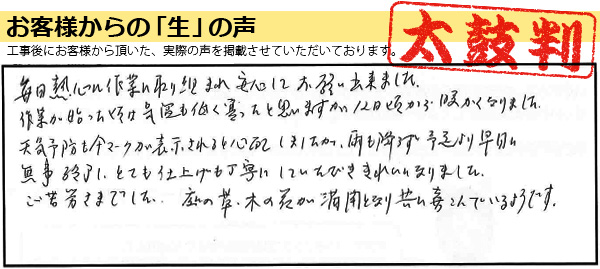 お客様からの「生」の声
工事後にお客様から頂いた、実際の声を掲載させていただいております。
太鼓判
毎日熱心に作業に取り組まれ安心してお願い出来ました。
作業が始った頃は気温も低く寒ったと思いますが 12日頃から暖かくなりました。
天気予防も傘マークが表示されると心配しましたが、雨も降らず予定より早目に
無事終了し、とても仕上げも丁寧にしていただききれいになりました。
ご苦労さまでした。 庭の草、木の花が満開となり共に喜こんでいるようです。